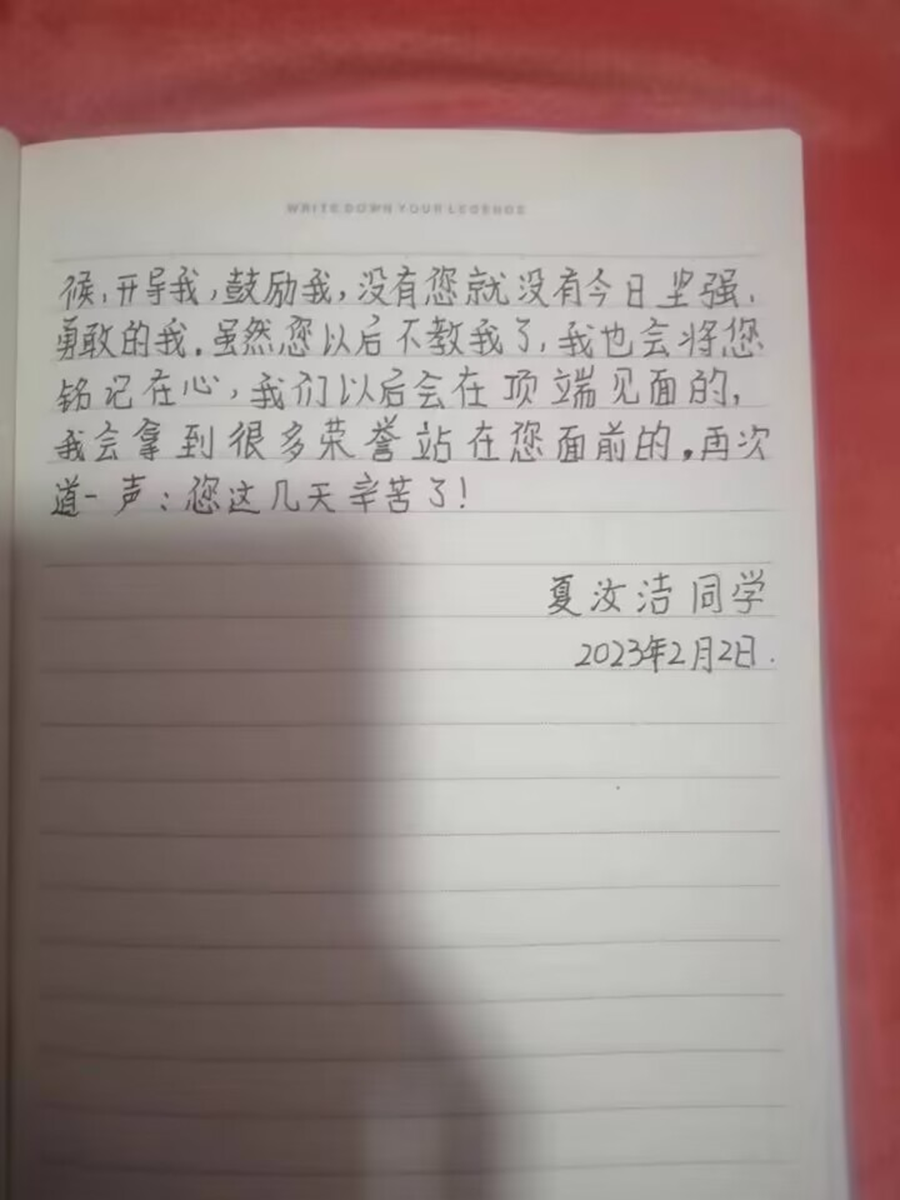 WRITE DOWN YOUR LEGENDS
候，开导我，鼓励我，没有您就没有今日坚强、
勇敢的我。虽然您以后不教我了，我也会将您
铭记在心，我们以后会在顶端见面的，
我会拿到很多荣誉站在您面前的。再次
道一声：您这几天辛苦了！
夏汝洁同学
2023年2月2日.